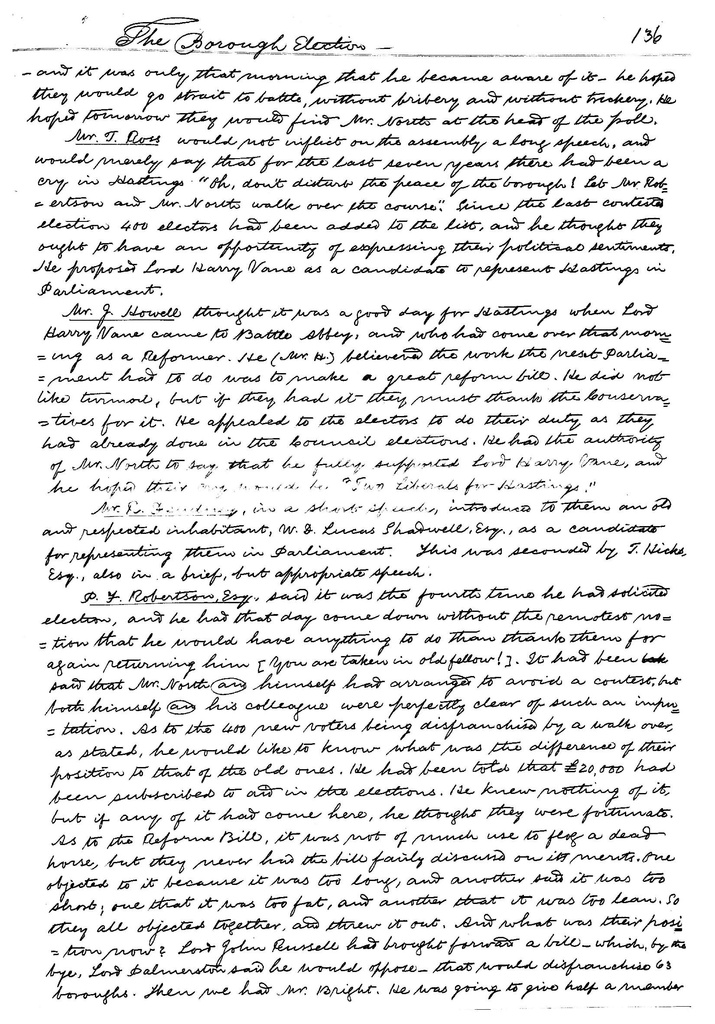 The Borough Election — 136
- and it was only that morning that he became aware of it - he hoped
they would go strait to battle, without bribery and without treckery. He
hoped tomorrow they would find Mr. North at the head of the poll.
Mr. T. Ross would not inflict on the assembly a long speech, and
would merely say that for the last seven years there had been a
cry in Hastings "Oh, don't disturb the peace of the borough! Let Mr. Rob=
=ertson and Mr. North walk over the course". Since the last contested
election 400 electors had been added to the list, and he thought they
ought to have an opportunity of expressing their political sentiments.
He proposed Lord Harry Vane as a candidate to represent Hastings in
Parliament.
Mr. J. Howell thought it was a good day for Hastings when Lord
Harry Vane came to Battle Abbey, and who had come over that morn=
=ing as a Reformer. He (Mr. H.) believed the work the next Parlia=
=ment had to do was to make a great reform bill. He did not
like turmoil, but if they had it they must thank the Conserva=
=tives for it. He appealed to the electors to do their duty as they
had already done in the Council elections. He had the authority
of Mr. North to say that he fully supported Lord Harry Vane, and
he hoped their would be "Two Liberals for Hastings."
Mr. in a short speech, introduced to them an old
and respected inhabitant, W. D. Lucas Shadwell, Esq., as a candidate
for representing them in Parliament. This was seconded by T. Hicks,
Esq., also in a brief, but appropriate speech.
P. F. Robertson, Esq. said it was the fourth time he had solicited
election, and he had that day come down without the remotest no=
=tion that he would have anything to do than thank them for
again returning him [You are taken in old fellow!]. It had been
said that Mr. North an himself had arranged to avoid a contest, but
both himself an his colleague were perfectly clear of such an impu=
=tation. As to the 400 new voters being disfranchised by a walk over,
as stated, he would like to know what was the difference of their
position to that of the old ones. He had been told that £20,000 had
been subscribed to aid in the elections. He knew nothing of it,
but if any of it had come here, he thought they were fortunate.
As to the Reform Bill, it was not of much use to flog a dead
horse, but they never had the bill fairly discussed on its merits. One
objected to it because it was too long, and another said it was too
short; one that it was too fat, and another that it was too lean. So
they all objected together, and threw it out. And what was their posi=
=tion now? Lord John Russell had brought forward a bill - which, by the
bye, Lord Palmerston said he would oppose - that would disfranchise 63
boroughs. Then we had Mr. Bright. He was going to give half a member